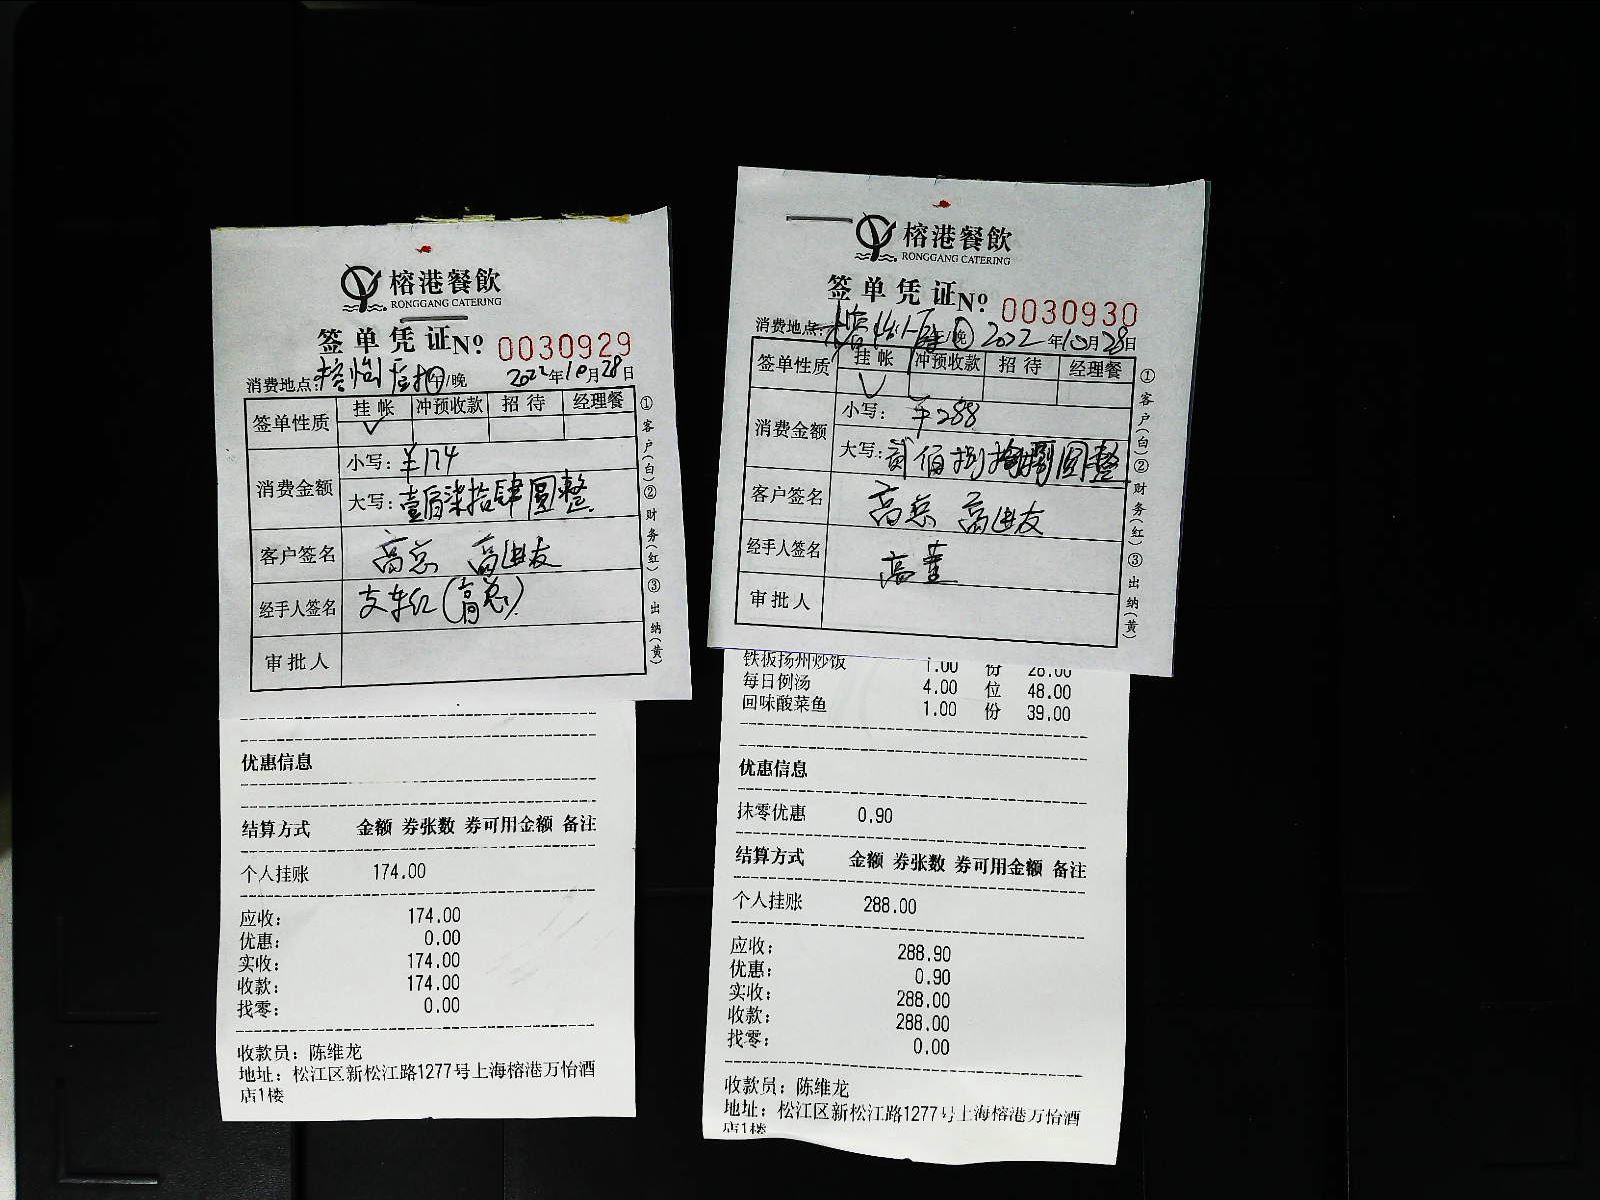 榕港餐飲
RONGGANG CATERING
签单凭证 No 0030929
消费地点: 午/晚 2022年10月28日
签单性质 挂帐 冲预收款 招待 经理餐
✓
消费金额 小写: ¥174
大写: 壹佰柒拾肆圆整
客户签名 高总 高进友
经手人签名 (高总)
审批人
①客户(白)②财务(红)③出纳(黄)
优惠信息
结算方式 金额 券张数 券可用金额 备注
个人挂账 174.00
应收: 174.00
优惠: 0.00
实收: 174.00
收款: 174.00
找零: 0.00
收款员: 陈维龙
地址: 松江区新松江路1277号上海榕港万怡酒
店1楼
榕港餐飲
RONGGANG CATERING
签单凭证 No 0030930
消费地点: /晚 2022年10月28日
签单性质 挂帐 冲预收款 招待 经理餐
✓
消费金额 小写: ¥288
大写: 贰佰捌拾捌圆整
客户签名 高总 高进友
经手人签名 高董
审批人
①客户(白)②财务(红)③出纳(黄)
铁板扬州炒饭 1.00 份 28.00
每日例汤 4.00 位 48.00
回味酸菜鱼 1.00 份 39.00
优惠信息
抹零优惠 0.90
结算方式 金额 券张数 券可用金额 备注
个人挂账 288.00
应收: 288.90
优惠: 0.90
实收: 288.00
收款: 288.00
找零: 0.00
收款员: 陈维龙
地址: 松江区新松江路1277号上海榕港万怡酒
店1楼